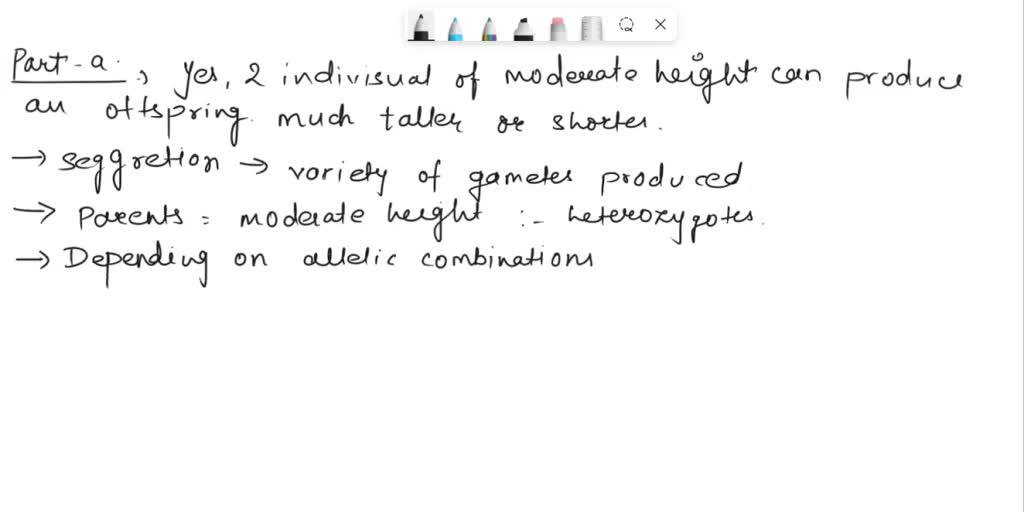 Part-a., Yes, 2 indivisual of moderate height can produce
an offspring. much taller or shorter.
→ seggretion → variety of gametes produced
→ Parents = moderate height :- heterozygotes.
→ Depending on allelic combinations